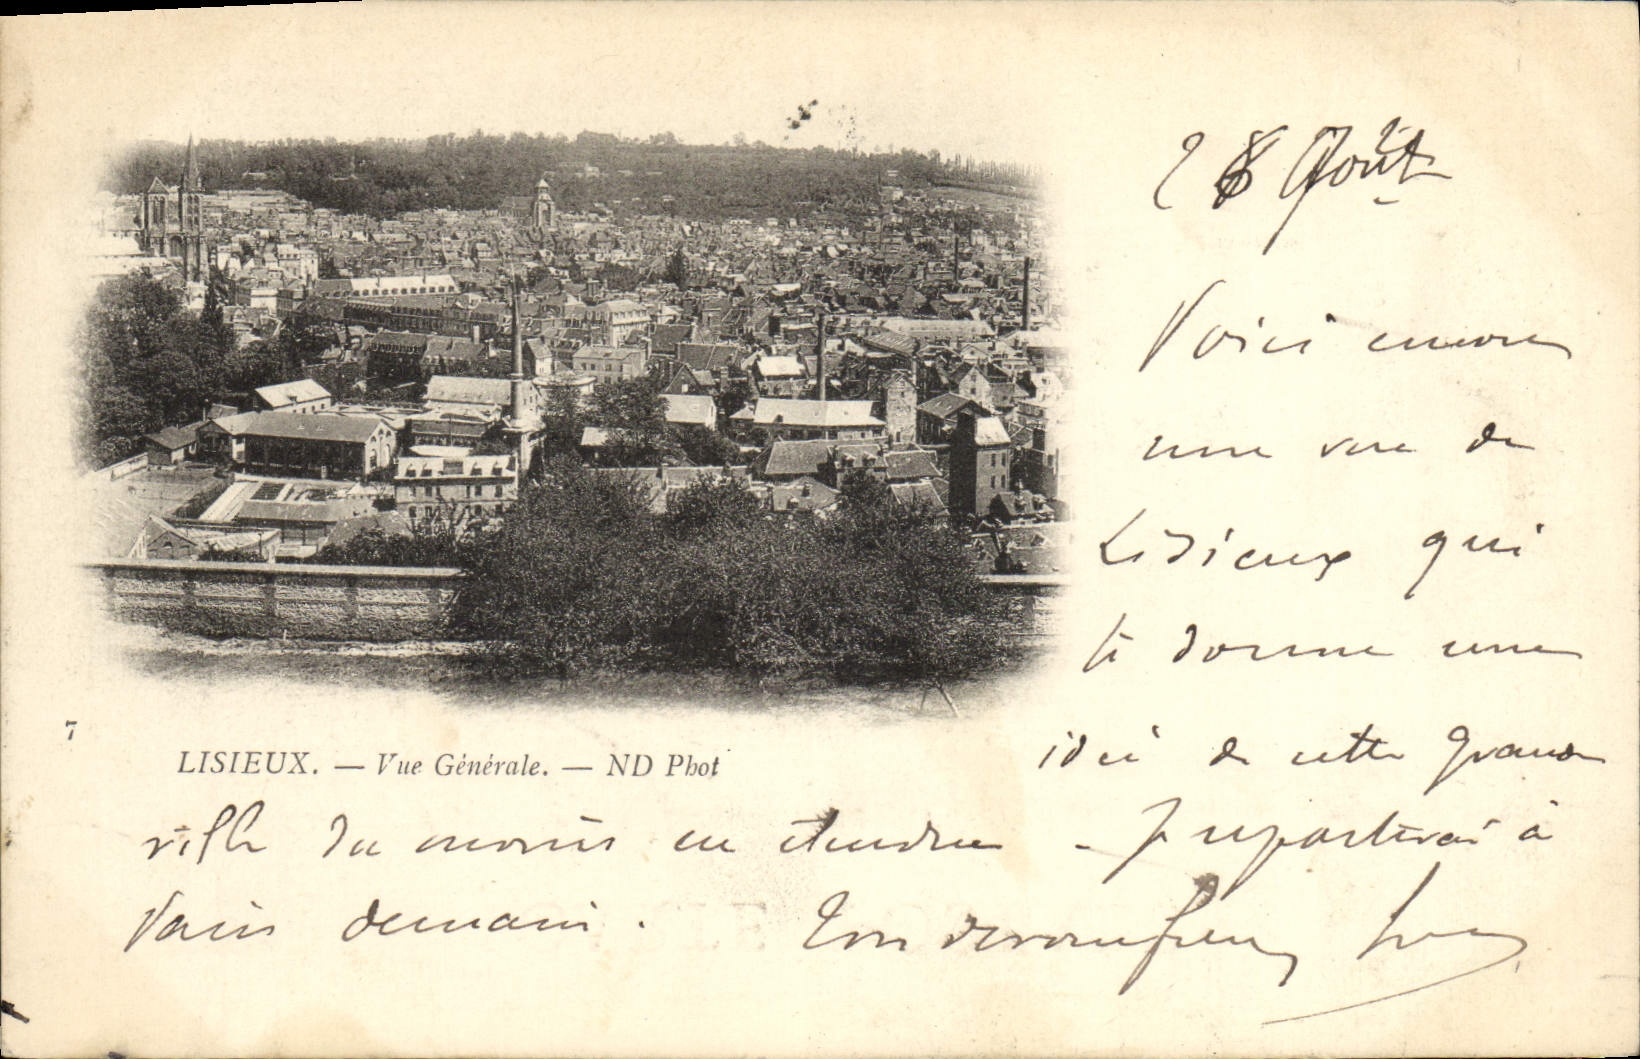 28 Août
Voici encore
une vue de
Lisieux qui
te donne une
idée de cette grande
7
LISIEUX. — Vue Générale. — ND Phot
ville du moins en étendue - Je repartirai à
demain. Ton